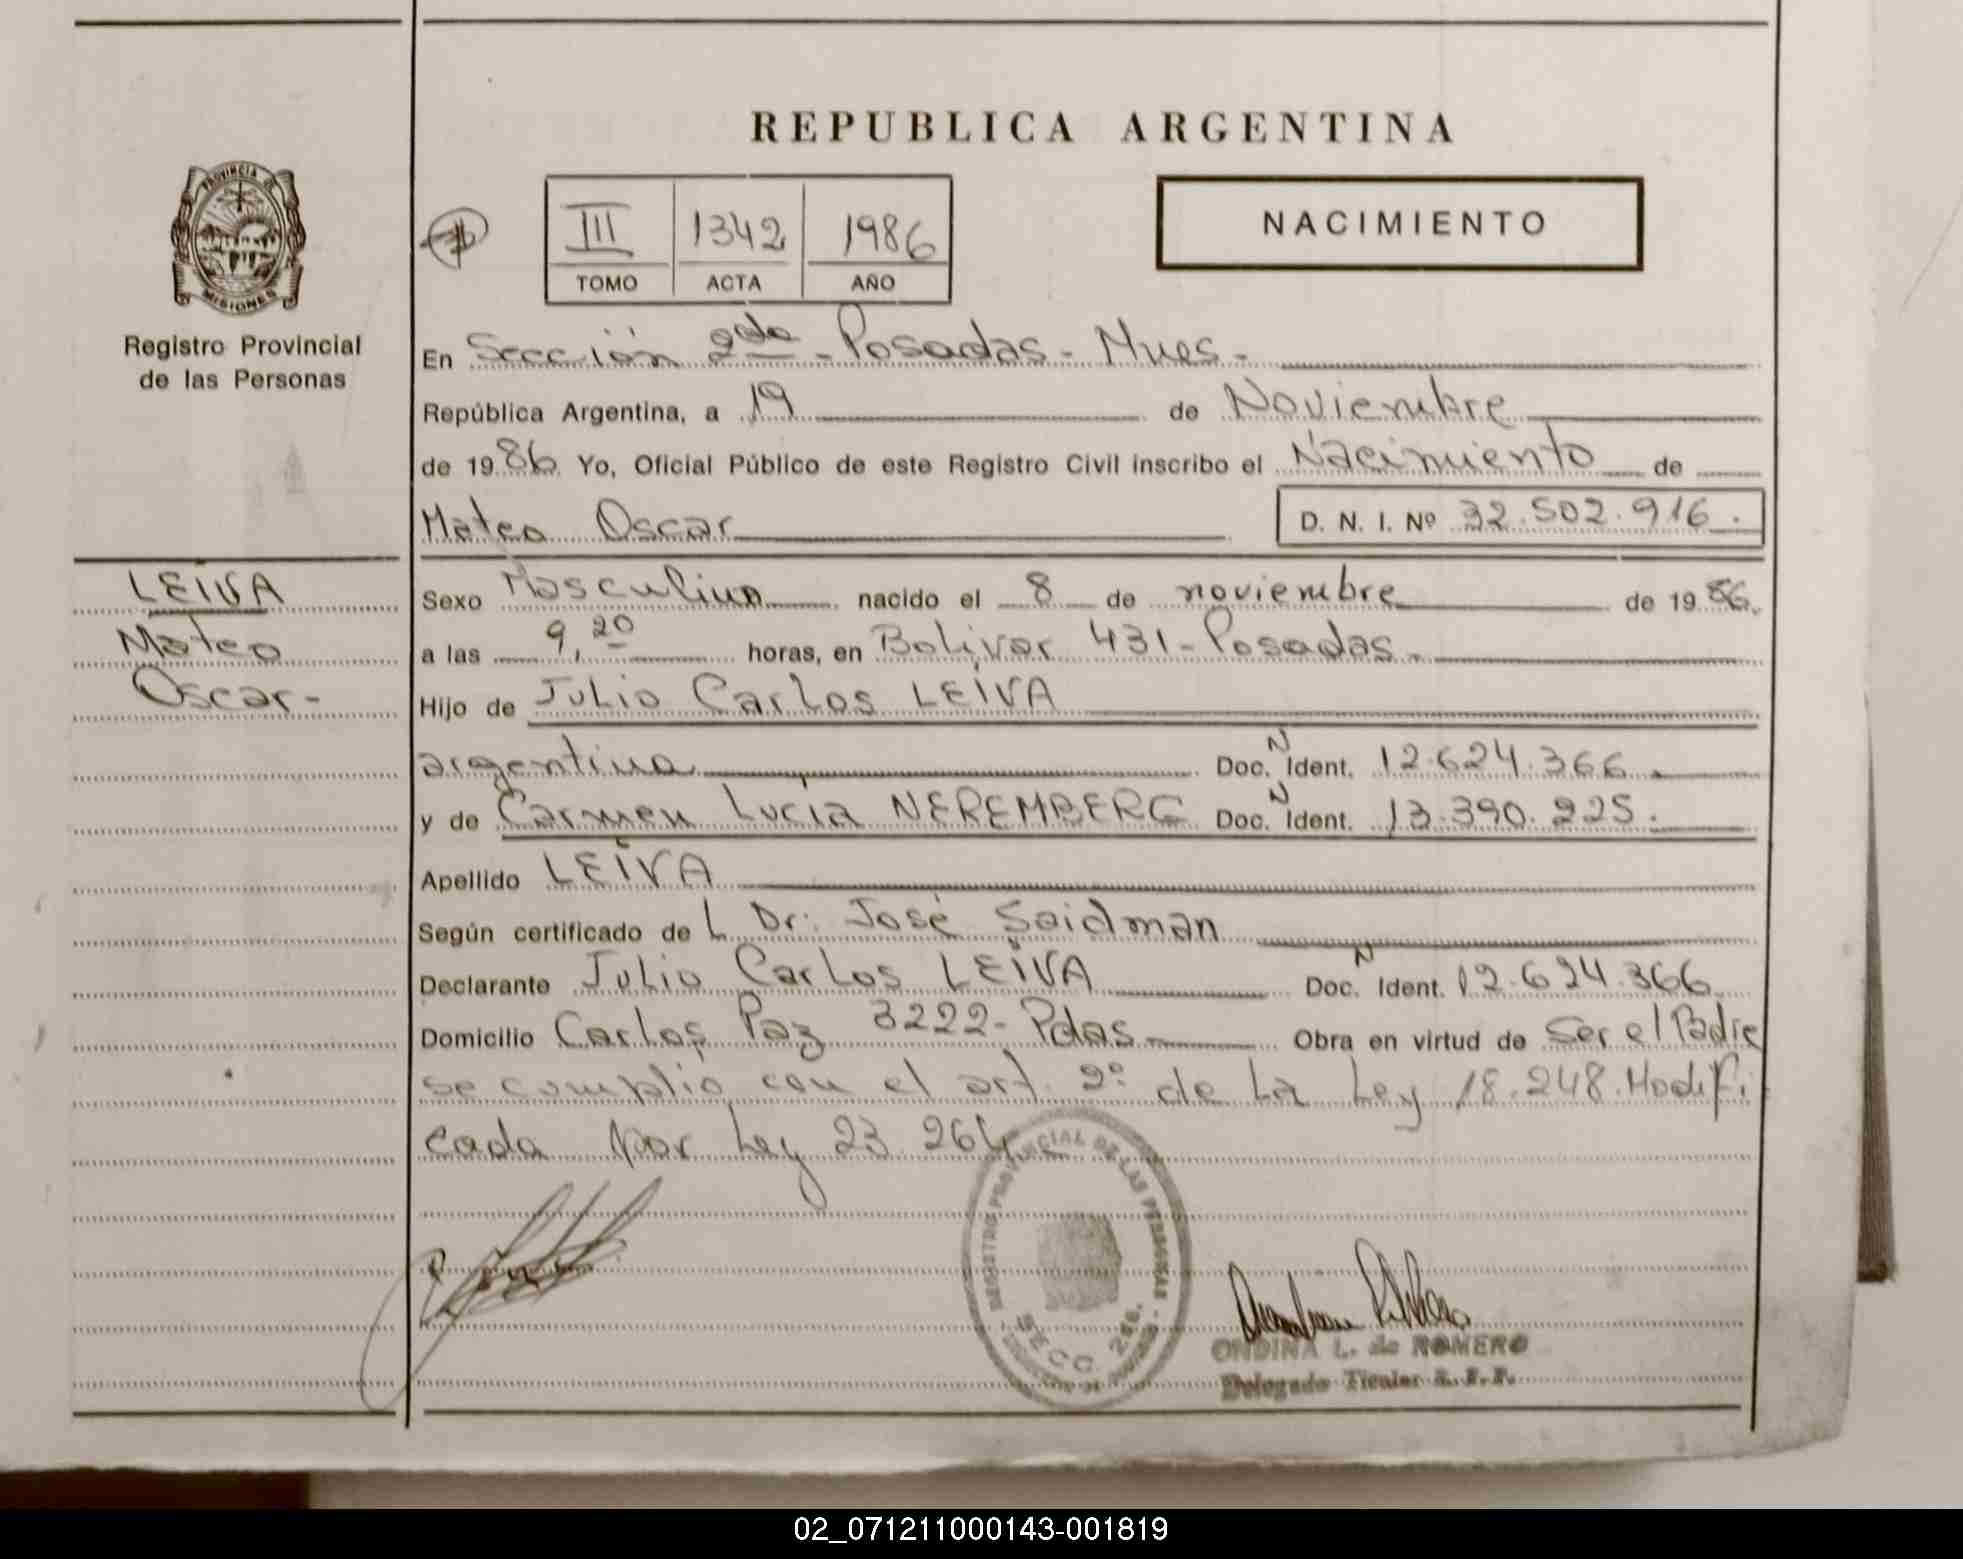 REPUBLICA ARGENTINA
PROVINCIA DE
MISIONES
Registro Provincial
de las Personas
III 1342 1986
TOMO ACTA AÑO
NACIMIENTO
En Sección 2da - Posadas - Mnes -
República Argentina, a 19 de Noviembre
de 1986 Yo, Oficial Público de este Registro Civil inscribo el Nacimiento de
Mateo Oscar D. N. I. Nº 32.502.916.
LEIVA
Mateo
Oscar-
Sexo Masculino nacido el 8 de noviembre de 1986.
a las 9,20 horas, en Bolivar 431 - Posadas.
Hijo de Julio Carlos LEIVA
argentino Doc. N Ident. 12.624.366.
y de Carmen Lucia NEREMBERG Doc. N Ident. 13.390.225.
Apellido LEIVA
Según certificado de L Dr: José Seidman
Declarante Julio Carlos LEIVA Doc. N Ident. 12.624.366.
Domicilio Carlos Paz 3222- Pdas Obra en virtud de Ser el Padre
se cumplió con el art. 2º de La Ley 18.248. Modifi
cada por Ley 23.264
REGISTRO PROVINCIAL DE LAS PERSONAS
SECC. 2da.
ONDINA L. de ROMERO
Delegado Titular R. P. P.
02_071211000143-001819